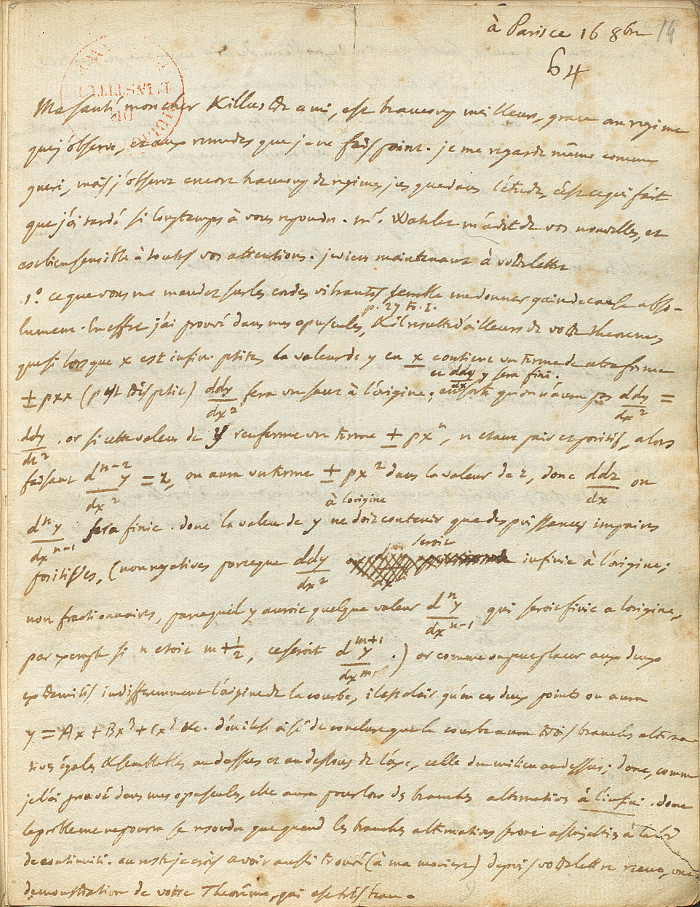 à Paris ce 16 8bre 14
64
Ma santé mon cher & illustre ami, est beaucoup meilleure, grace au regime
que j'observe, et aux remedes que je ne fais point. je me regarde même comme
gueri, mais j'observe encore beaucoup de regime, jusques dans l'étude, c'est ce qui fait
que j'ai tardé si longtemps à vous repondre. mr. m'a dit de vos nouvelles, et
est bien sensible à toutes vos attentions. je viens maintenant à votre lettre
1.º ce que vous me mandez sur les cordes vibrantes semble me donner gain de cause abso-
lument. En effet j'ai prouvé dans mes opuscules, p. 27 to. I. & il resulte d'ailleurs de votre theoreme,
que si lorsque x est infin. petite, la valeur de y en x contient un terme de cette forme
± pxx (p est très petit) ddy/dx² fera un saut à l'origine, et ddy/dx² y sera fini; ensorte qu'on n'aura pas ddy/dx² =
ddy/dt². or si cette valeur de y renferme un terme ± pxⁿ, n etant pair et positif, alors
faisant d^{n-2}y/dx² = z, on aura un terme ± px² dans la valeur de z, donc ddz/dx ou
dⁿy/dx^{n-1} à l'origine sera finie. donc la valeur de y ne doit contenir que des puissances impaires
positives, (non negatives parce que ddy/dx² seroit infinie à l'origine;
non fractionnaires, parce qu'il y auroit quelque valeur dⁿy/dx^{n-1} qui seroit finie a l'origine,
par exemple si n etoit m+1/2, ce seroit d^{m+1}y/dx^m.) or comme on peut placer aux deux
extremités indifferemment l'origine de la courbe, il est clair qu'en ces deux points on aura
y = Ax + Bx³ + Cx⁵ &c. d'où il est aisé de conclure que la courbe aura trois branches alterna-
tives égales & semblables au dessus et au dessous de l'axe, celle du milieu au dessus; donc, comme
je l'ai prouvé dans mes opuscules, elle aura pour lors des branches alternatives à l'infini. donc
le probleme ne pourra se resoudre que quand les branches alternatives seront assujetties à la loi
de continuité. au reste je crois avoir aussi trouvé (à ma maniere) depuis votre lettre recue, une
demonstration de votre Theorême, qui est très beau.